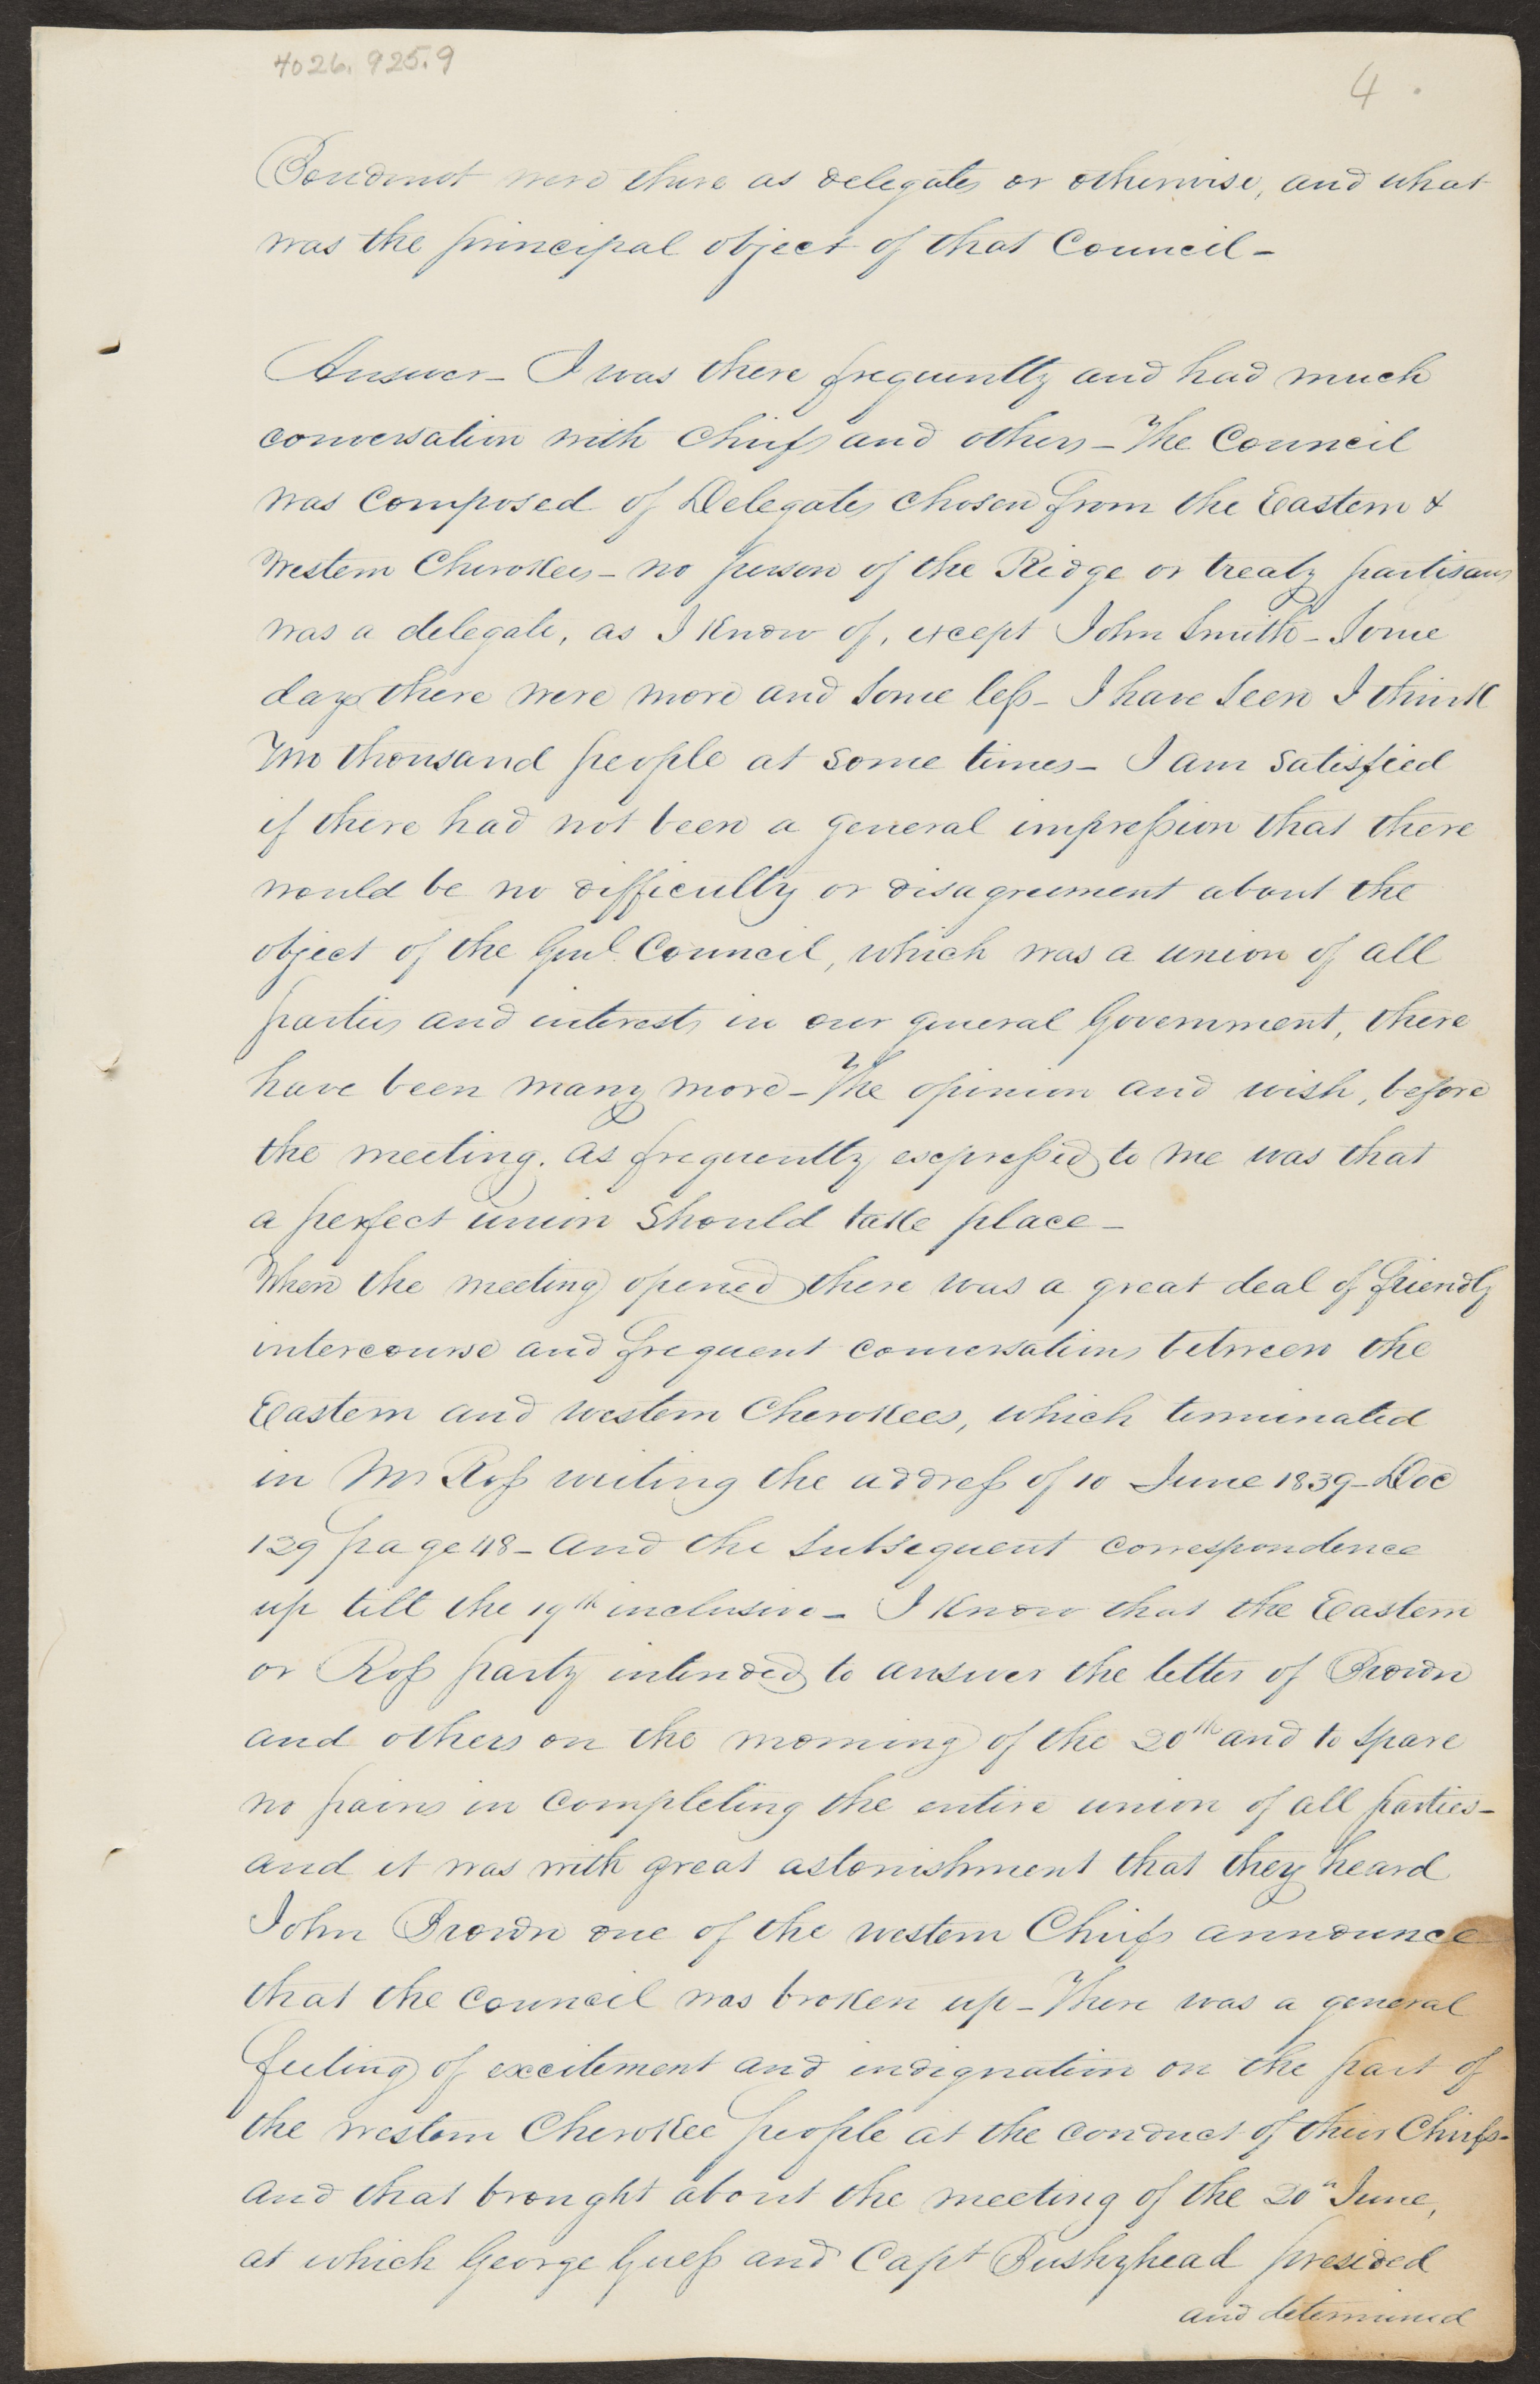 4026.925.9
4.
Boudinot were there as delegates or otherwise, and what
was the principal object of that Council-
Answer- I was there frequently and had much
conversation with Chiefs and others- The Council
was composed of Delegates chosen from the Eastern &
Western Cherokees- no person of the Ridge or treaty partisans
was a delegate, as I know of, except John Smith- Some
days there were more and some less- I have seen I think
Two thousand people at some times- I am satisfied
if there had not been a general impression that there
would be no difficulty or disagreement about the
object of the Genl. Council, which was a union of all
parties and interests in our general Government, there
have been many more- The opinion and wish, before
the meeting. as frequently expressed to me was that
a perfect union should take place-
When the meeting opened there was a great deal of friendly
intercourse and frequent conversations between the
Eastern and western Cherokees, which terminated
in Mr Ross writing the address of 10 June 1839- Doc
129 page 48- and the subsequent correspondence
up till the 19th inclusive- I know that the Eastern
or Ross party intended to answer the letter of Brown
and others on the morning of the 20th and to spare
no pains in completing the entire union of all parties-
and it was with great astonishment that they heard
John Brown one of the western Chiefs announce
that the Council was broken up- There was a general
feeling of excitement and indignation on the part of
the western Cherokee people at the conduct of their Chiefs-
and that brought about the meeting of the 20th June,
at which George Guess and Capt Bushyhead presided
and determined